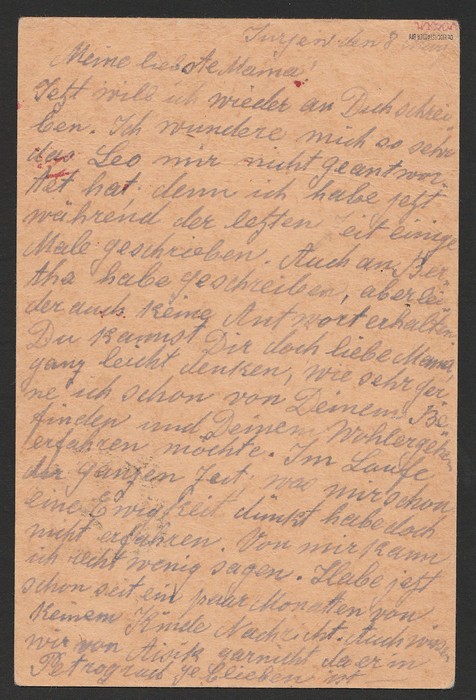 Jurjew den 8
Meine liebste Mama!
Jetzt will ich wieder an Dich schrei
ben. Ich wundere mich so sehr
das Leo mir nicht geantwor-
tet hat denn ich habe jetzt
während der letzten eit einige
Male geschrieben. Auch an Ber
tha habe geschreiben, aber lei
der auch keine Antwort erhalten.
Du kannst Dir doch liebe Mama,
ganz leicht denken, wie sehr ger
ne ich schon von Deinem Be
finden und Deinem Wohlergehen
erfahren möchte. Im Laufe
der ganzen Zeit, was mir schon
eine Ewigkeit dünkt habe doch
nicht erfahren. Von mir kann
ich recht wenig sagen. Habe jetzt
schon seit ein paar Monatten von
keinem Kinde Nachricht. Auch wissen
wir von garnicht da er in
Petrograd geblieben ist